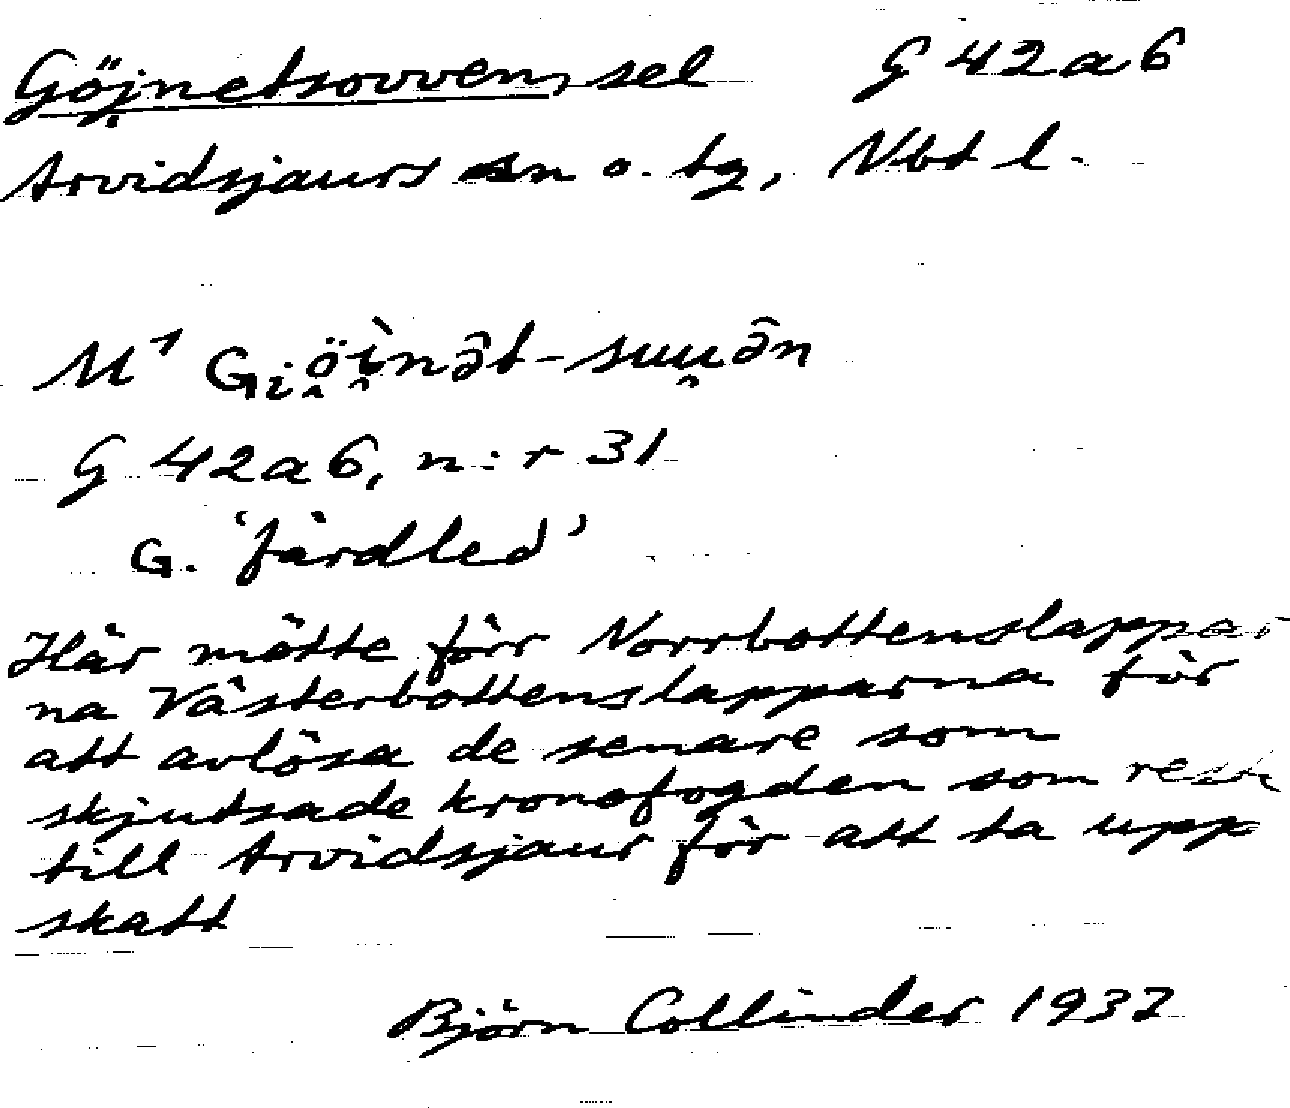 Göjnetsovven, sel G 42a6
Arvidsjaurs sn o. tg, Nbt l.
M¹ Gi̭ö̭ı̭̀nə̑t-suu̯ə̑n
G 42a6, n:r 31
G. 'färdled'
Här mötte förr Norrbottenslappar
na Västerbottenslapparna för
att avlösa de senare som
skjutsade kronofogden som reste
till Arvidsjaur för att ta upp
skatt
Björn Collinder 1937